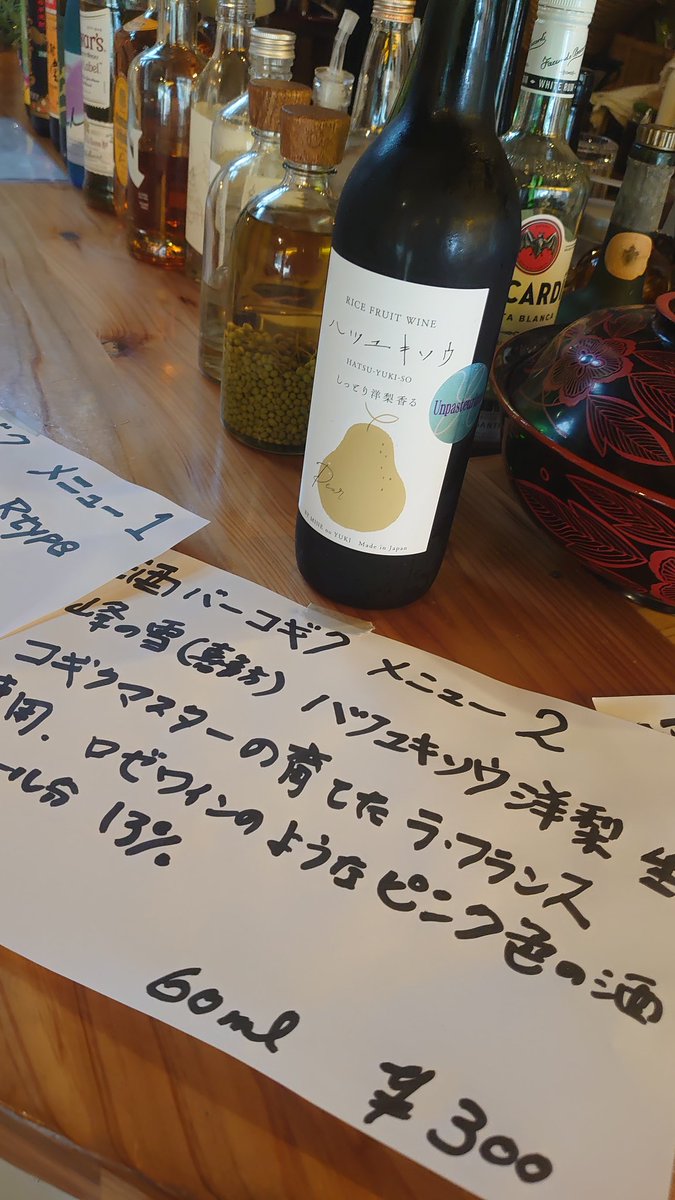 RICE FRUIT WINE
ハツユキソウ
HATSU-YUKI-SO
しっとり洋梨香る
Pear
Made in Japan
Unpasteu
CARDI
TA BLANCA
メニュー1
Rtype
酒バーコギク メニュー2
峰の雪(喜多方) ハツユキソウ 洋梨 生
コギクマスターの育てた ラ・フランス
使用. ロゼワインのようなピンク色の酒
ール分 13%
60ml ¥300